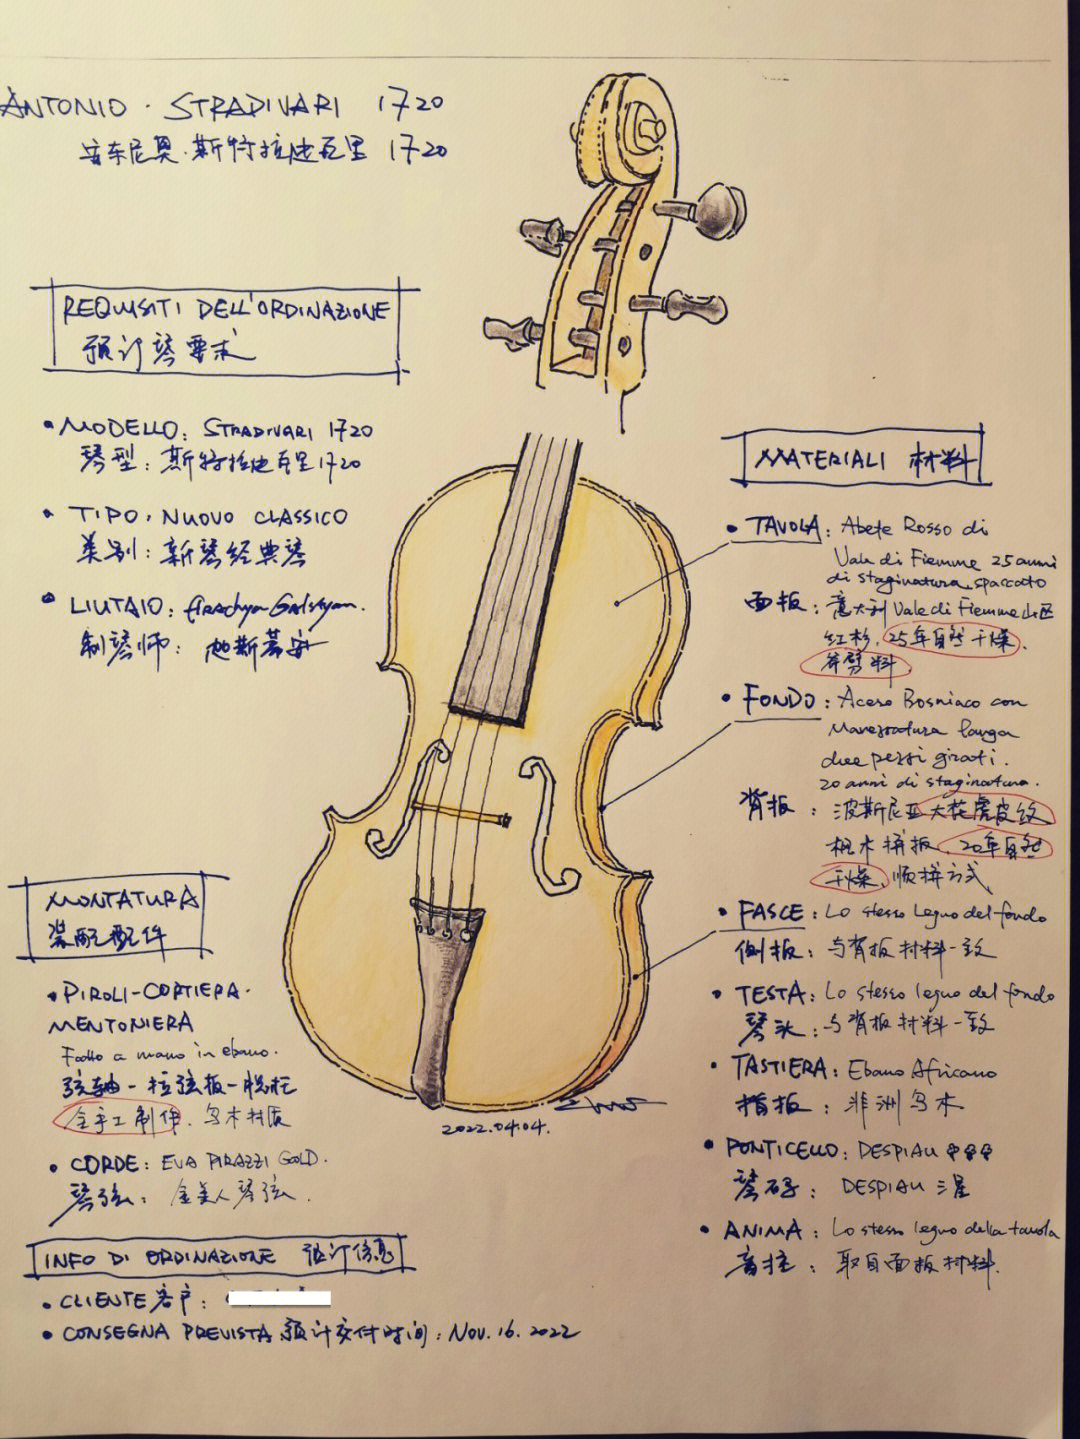 ANTONIO · STRADIVARI 1720
安东尼奥·斯特拉迪瓦里 1720
REQUISITI DELL'ORDINAZIONE
预订琴要求
• MODELLO: STRADIVARI 1720
琴型：斯特拉迪瓦里1720
• TIPO: NUOVO CLASSICO
类别：新琴经典琴
• LIUTAIO: Arachya Galstyan.
制琴师：
MONTATURA
装配配件
• PIROLI-CORTIERA-
MENTONIERA
Fatto a mano in ebano.
弦轴-拉弦板-腮托
全手工制作. 乌木材质
• CORDE: EVA PIRAZZI GOLD.
琴弦：金美人琴弦.
INFO DI ORDINAZIONE 预订信息
• CLIENTE 客户：
• CONSEGNA PREVISTA 预计交付时间：NOV. 16. 2022
2022.04.04.
MATERIALI 材料
• TAVOLA: Abete Rosso di
Vale di Fiemme 25 anni
di staginatura, spaccato
面板：意大利Vale di Fiemme山区
红杉, 25年自然干燥,
斧劈料
• FONDO: Acero Bosniaco con
Marezzatura larga
due pezzi girati.
20 anni di staginatura.
背板：波斯尼亚大花虎皮纹
枫木拼板, 20年自然
干燥, 顺拼方式
• FASCE: Lo stesso Legno del fondo
侧板：与背板材料一致
• TESTA: Lo stesso legno del fondo
琴头：与背板材料一致
• TASTIERA: Ebano Africano
指板：非洲乌木
• PONTICELLO: DESPIAU
琴码：DESPIAU 三星
• ANIMA: Lo stesso legno della tavola
音柱：取自面板材料.